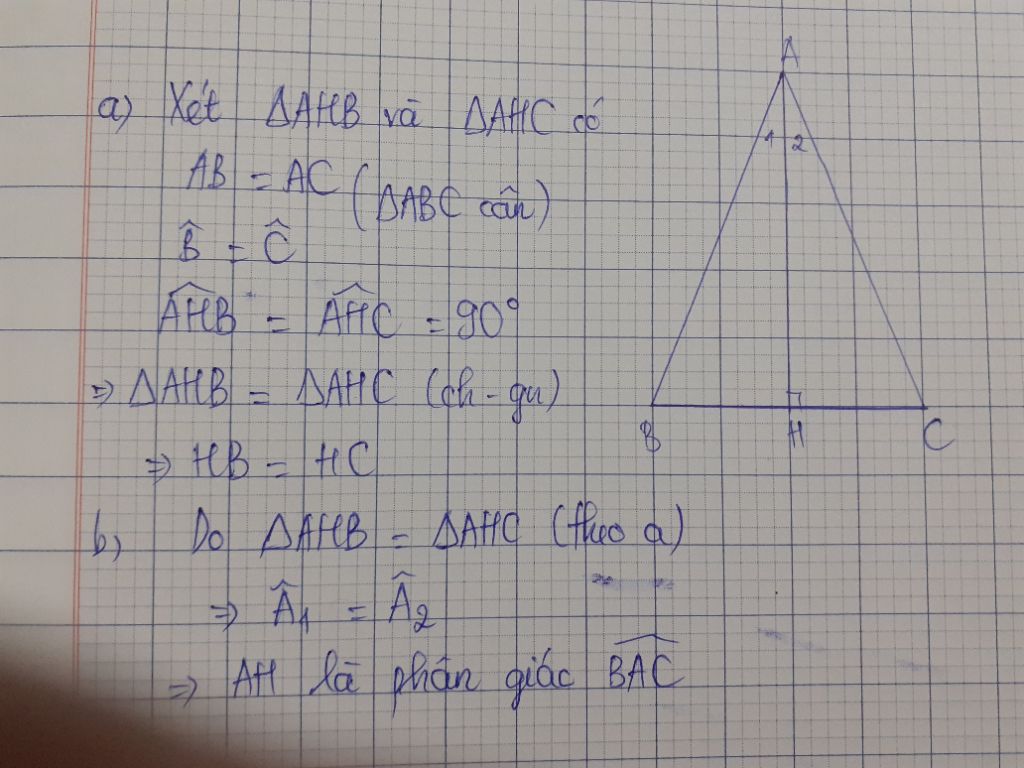 a) Xét ΔAHB và ΔAHC có
AB = AC (ΔABC cân)
B̂ = Ĉ
AHB̂ = AHĈ = 90°
⇒ ΔAHB = ΔAHC (ch - gn)
⇒ HB = HC
b) Do ΔAHB = ΔAHC (theo a)
⇒ Â1 = Â2
⇒ AH là phân giác BAC
A
1 2
B H C